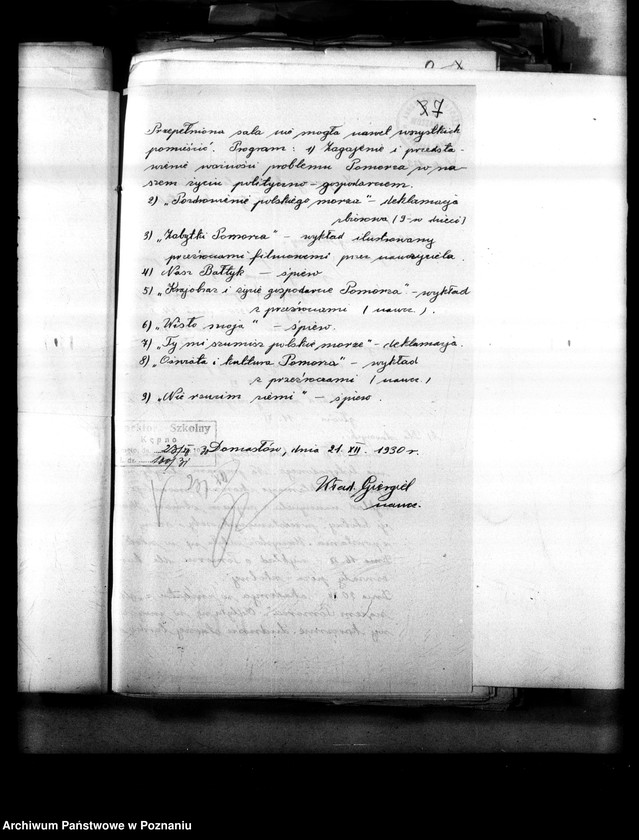 X7
Przepełniona sala nie mogła nawet wszystkich
pomieścić. Program: 1) Zagajenie i przedsta-
wienie ważności problemu Pomorza w na-
szem życiu polityczno-gospodarczem.
2) „Pozdrowienie polskiego morza” - deklamacja
zbiorowa (9-ro dzieci)
3) „Zabytki Pomorza” - wykład ilustrowany
przeźroczami filmowemi przez nauczyciela.
4) Nasz Bałtyk - śpiew
5) „Krajobraz i życie gospodarcze Pomorza” - wykład
z przeźroczami (naucz.).
6) „Wisło moja” - śpiew.
7) „Ty mi szumisz polskie morze” - deklamacja.
8) „Oświata i kultura Pomorza” - wykład
z przeźroczami (naucz.)
9) „Nie rzucim ziemi” - śpiew.
Szkolny
Kępno
Domasłów, dnia 21. XII. 1930 r.
Wład. Giergiel
naucz.
Archiwum Państwowe w Poznaniu